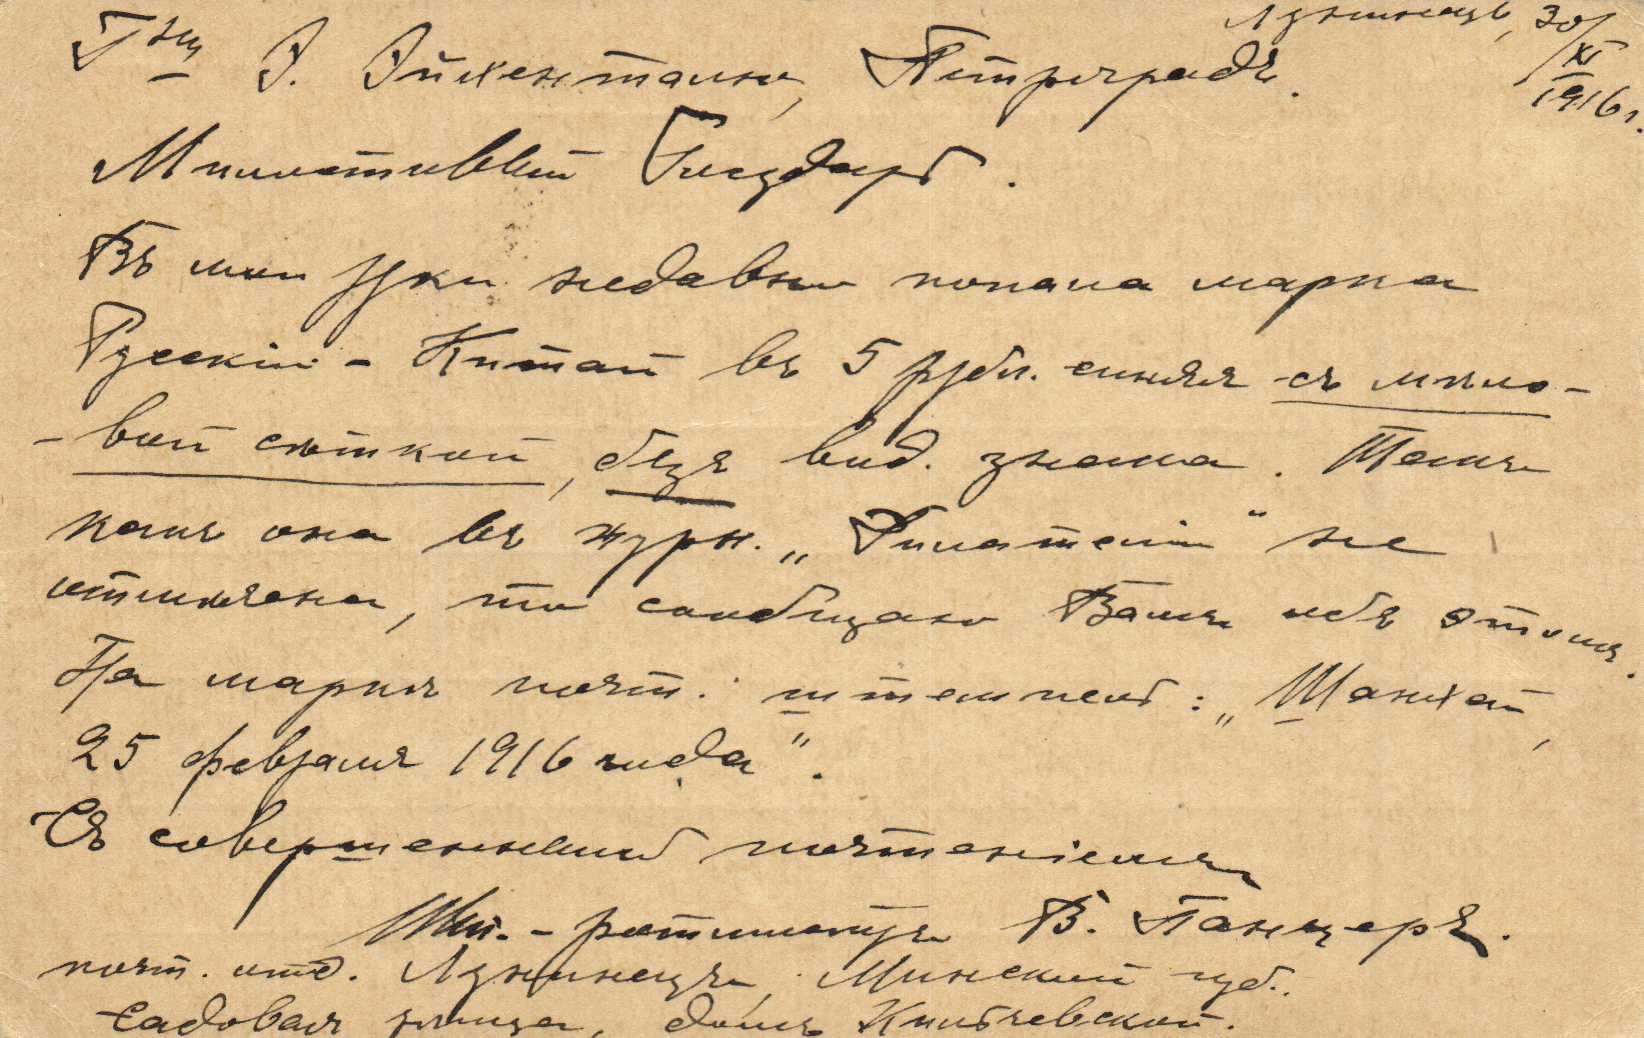 Лунинецъ, 30/XI 1916 г.
Г-ну Э. Эйхенталю, Петроградъ.
Милостивый Государь.
Въ мои руки недавно попала марка
Русскій - Китай въ 5 рубл. синяя съ мѣло-
- вой сѣткой, безъ вод. знака. Такъ
какъ она въ журн. „Филателія" не
отмѣчена, то сообщаю Вамъ объ этомъ.
На маркѣ почт. штемпель: „Шанхай,
25 февраля 1916 года".
Съ совершеннымъ почтеніемъ
Шт.-ротмистръ В. Панцеръ.
почт. отд. Лунинецъ, Минской губ.
Садовая улица, домъ